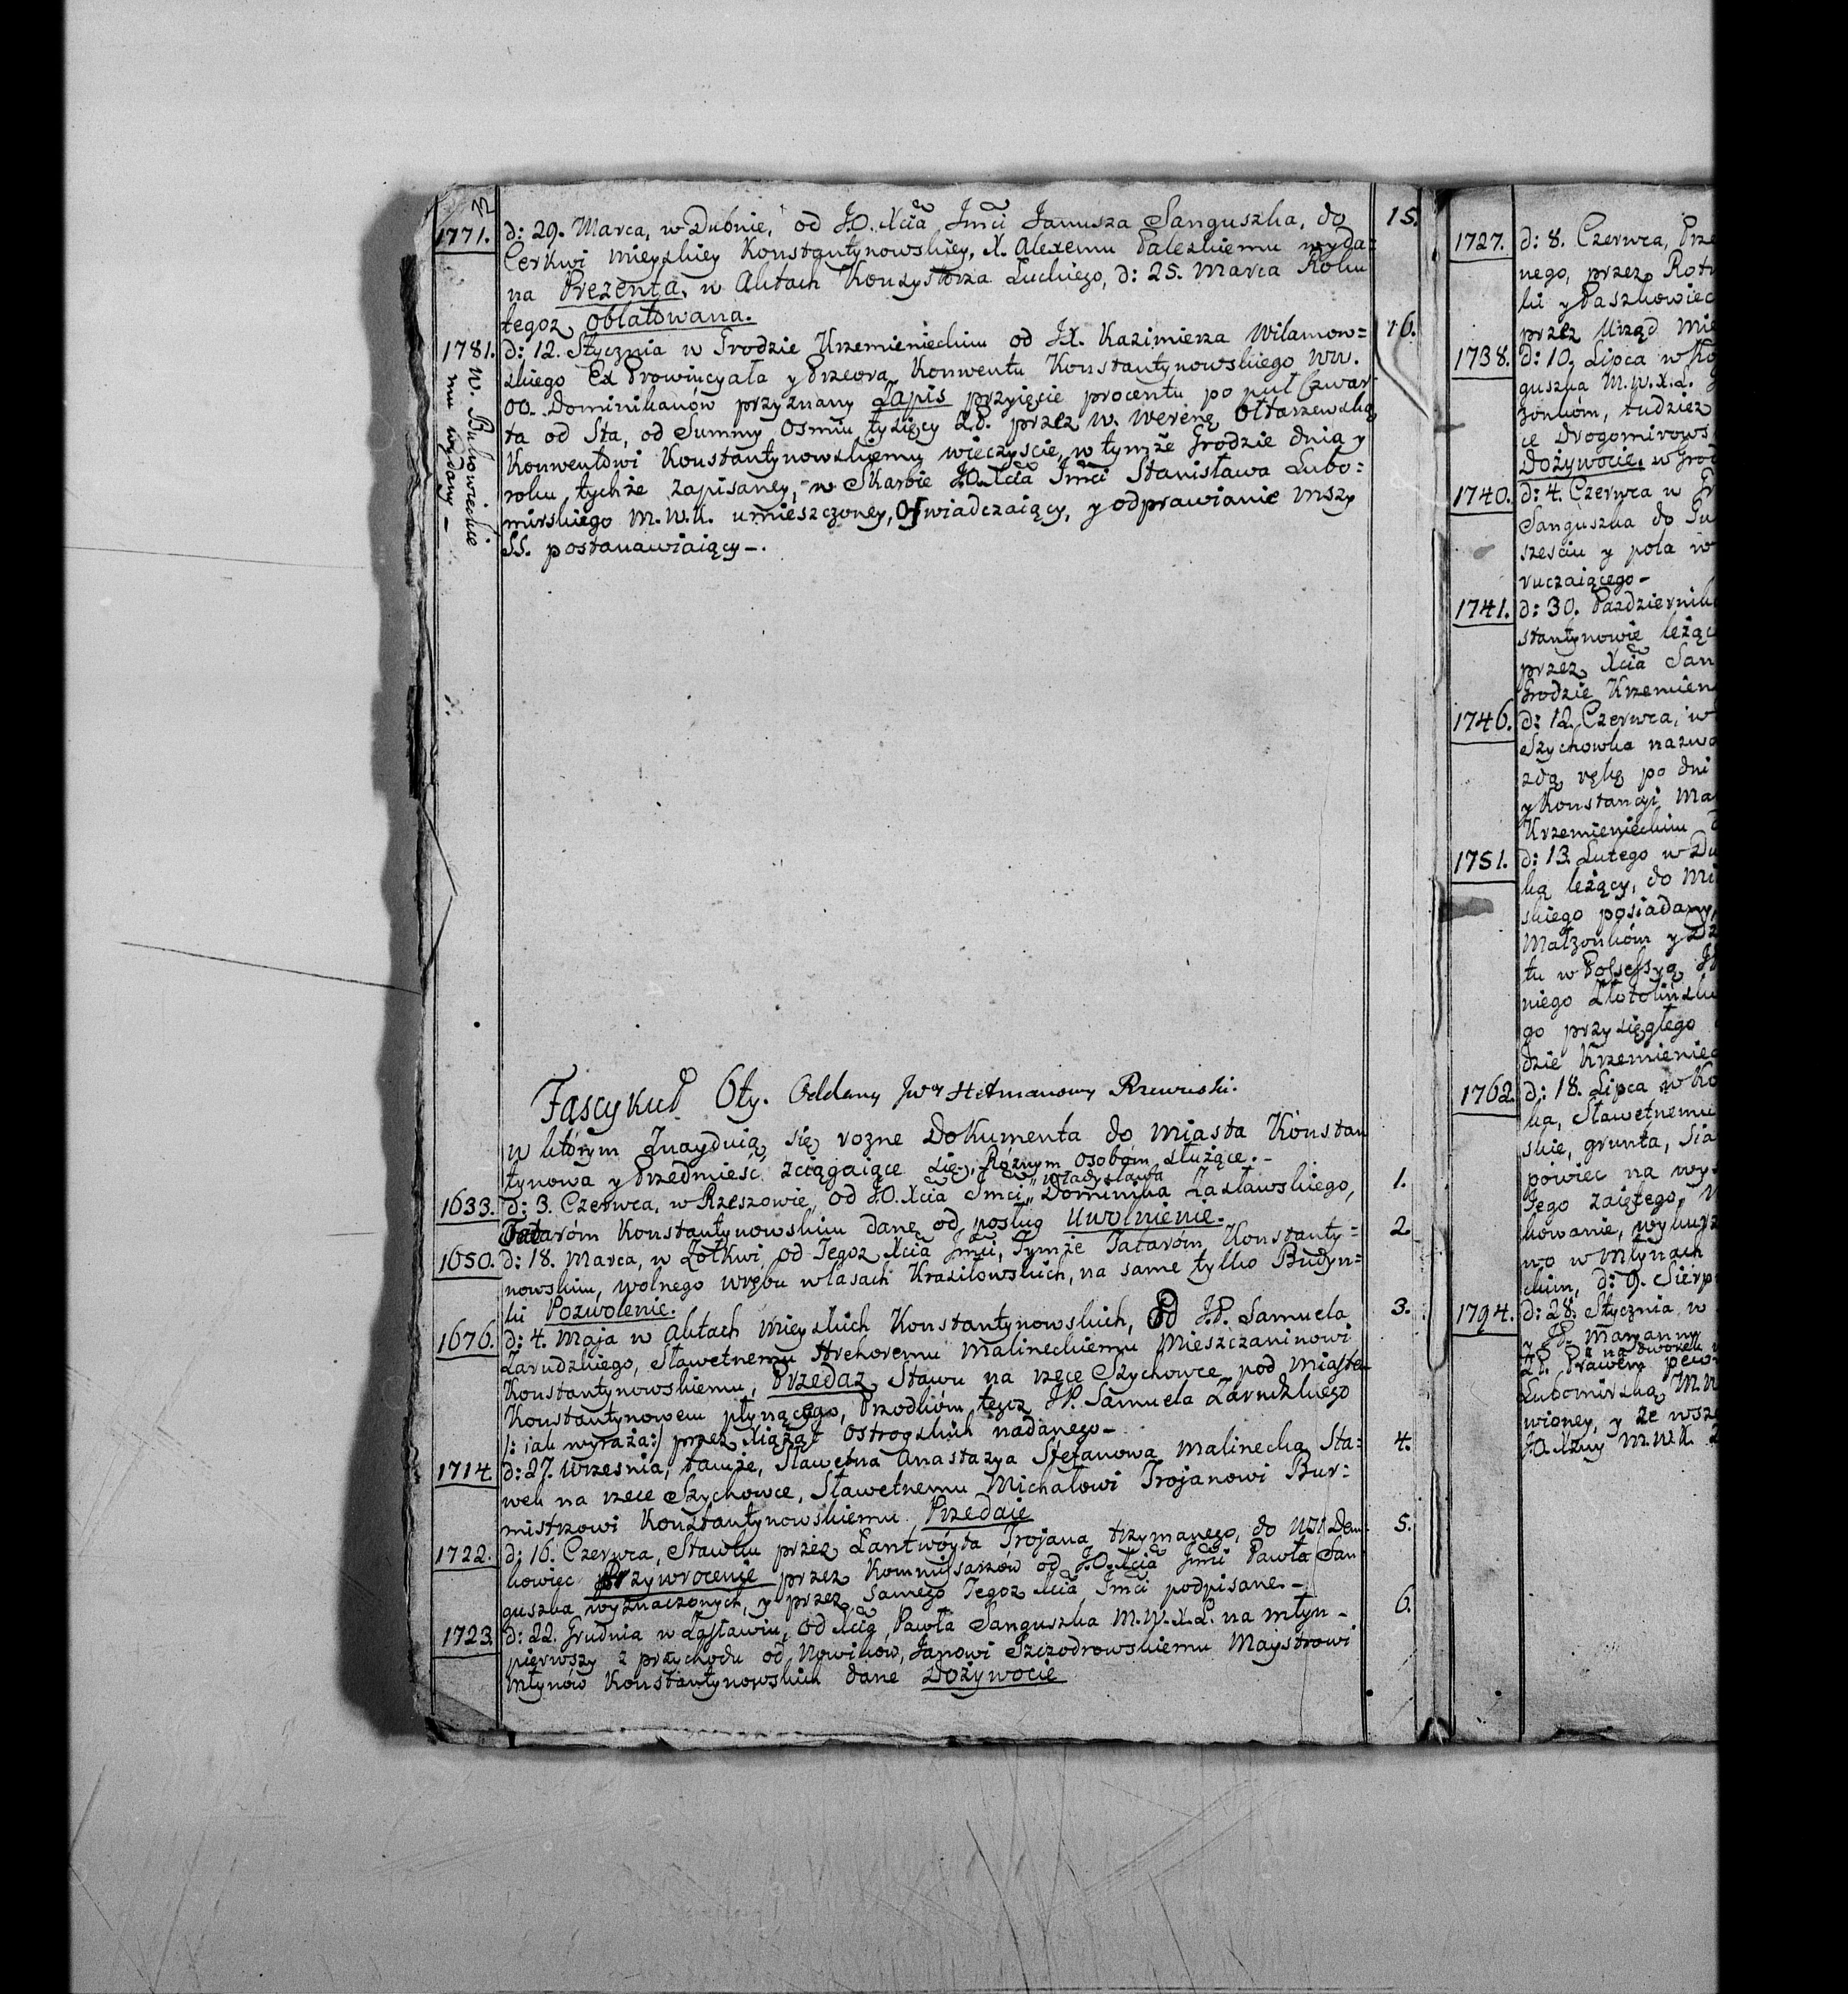 72
1771. d: 29. Marca, w Dubnie, od JO. Xcia Jmci Janusza Sanguszka, do 15.
Cerkwi mieyskiey Konstantynowskiey, X. Alexemu Paleskiemu wyda=
na Prezenta, w Aktach Konsystorza Łuckiego, d: 25. Marca Roku
tegoz oblatowana.
1781. d: 12. Stycznia w Grodzie Krzemienieckim od JX. Kazimierza Wilamow= 16.
skiego Ex Prowincyała y Przeora Konwentu Konstantynowskiego WW.
OO. Dominikanów przyznany Zapis przyięcie procentu po puł czwar
ta od Sta, od Summy osmiu tysięcy Zł. przez W. Werenę Ołtaszewską
Konwentowi Konstantynowskiemu wieczyscie, w tymże Grodzie dnia y
roku tychże zapisaney, w Skarbie JO. Xcia Jmci Stanisława Lubo=
mirskiego M.W.K. umieszczoney, Oswiadczaiący, y odprawianie mszy
SS. postanawiaiący -.
W. Bukowieckie
mu wydany -
Fascykuł 6ty. Oddany JWey Hetmanowy Rzewuski.
w którym Znayduią się rozne Dokumenta do miasta Konstan
tynowa y Przedmieść zciągaiące się, Róznym osobom służące. -
1633. d: 3. Czerwca, w Rzeszowie, od JO. Xcia Jmci „ Władysława „ Dominika Zasławskiego, 1.
Tatarom Konstantynowskim dane od posług Uwolnienie.
1650. d: 18. Marca, w Żołkwi, od Tegoz Xcia Jmci, Tymże Tatarom Konstanty= 2.
nowskim, wolnego wrębu w lasach Krasiłowskich, na same tylko Budyn=
ki Pozwolenie.
1676. d: 4. Maja w Aktach Mieyskich Konstantynowskich, Od JP. Samuela 3.
Zarudzkiego, Sławetnemu Hrehoremu Malineckiemu Mieszczaninowi
Konstantynowskiemu, Przedaz Stawu na rzece Szychowce, pod miastem
Konstantynowem płynącego, Przodkom tegoz JP. Samuela Zarudzkiego
/: iak wyraża:/ przez Xiążąt Ostrogskich nadanego -
1714. d: 27. Wrzesnia, tamże, Sławetna Anastazya Stefanowa Malinecka Sta= 4.
wek na rzece Szychowce, Sławetnemu Michałowi Trojanowi Bur=
mistrzowi Konstantynowskiemu Przedaie
1722. d: 16. Czerwca, Stawku przez Lantwóyta Trojana trzymanego, do wsi Dem= 5.
kowiec Przywrocenie przez Kommissarzów od JO. Xcia Jmci Pawła San
guszka wyznaczonych, y przez samego Tegoz Xcia Jmci podpisane. -
1723. d: 22. Grudnia w Zasławiu, od Xcia Pawła Sanguszka M.W.X.L. na młyn - 6.
pierwszy z przychodu od Nowików, Janowi Szczodrowskiemu Maystrowi
Młynów Konstantynowskich dane Dożywocie
1727. d: 8. Czerwca, Prze
nego, przez Rotm
ki y Paszkowiec
przez Urząd Mie
1738. d: 10. Lipca w Ko
guszka M.W.X.L.
żonkom, tudzież
ie Drogomirows
Dożywocie, w Grod
1740. d: 4. Czerwca w Gr
Sanguszka do
szesciu y poła w
ruczaiącego -
1741. d: 30. Pazdziernika
stantynowie leżąc
przez Xcia San
Grodzie Krzemien
1746. d: 12. Czerwca, w
Szychowka nazwa
zdą rękę po dni
y Konstancyi Ma
Krzemienieckim
1751. d: 13. Lutego w Du
ką leżący, do
skiego posiadany,
Małzonkom y
tu w Possessyą
niego Złotolińsk
go przysięgłego
dzie Krzemieniec
1762. d: 18. Lipca w Ko
ka, Sławetnemu
skie, grunta, Sia
powiec na
Jego zaiętego,
kowanie,
wo w młynach
ckim, d: 9. Sierp
1794. d: 28. Stycznia w
y JP. Maryanny
na dworek
Prawem pew
Lubomirską M.W
wioney, y że wsz
JO. Xżny M.W.K.